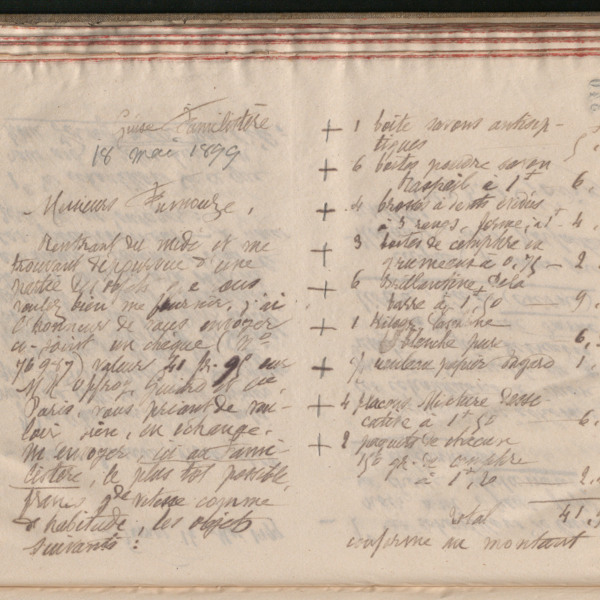 Guise Familistère
18 mai 1899
Messieurs Fumouze,
Rentrant du midi et me
trouvant dépourvue d'une
partie des objets que vous
voulez bien me fournir, j'ai
l'honneur de vous envoyer
ci-joint un chèque (N°
valeur 41 fr. 95 sur
Paris, vous priant de vou-
loir bien, en échange,
m'envoyer ici au Fami-
listère, le plus tôt possible,
franco gde vitesse comme
d'habitude, les objets
suivants :
+ 1 boîte savons antisep-
tiques
+ 6 boîtes poudre savon
Raspail à 1f 6.
+ 4 brosses à dents
à 3 rangs, forme, à 1f 4.
+ 3 boîtes de camphre en
grumeaux à 0,75 2.
+ 6 Brillantine
à 1f,50 9.
+ 1
blanche pure 6.
rouleau papier 1.
+ 4 flacons Mixture
à 1f 50 6.
+ 2 paquets de chacun
150 gr. de camphre
à 1f,20 2.
Total 41,9
conforme au montant